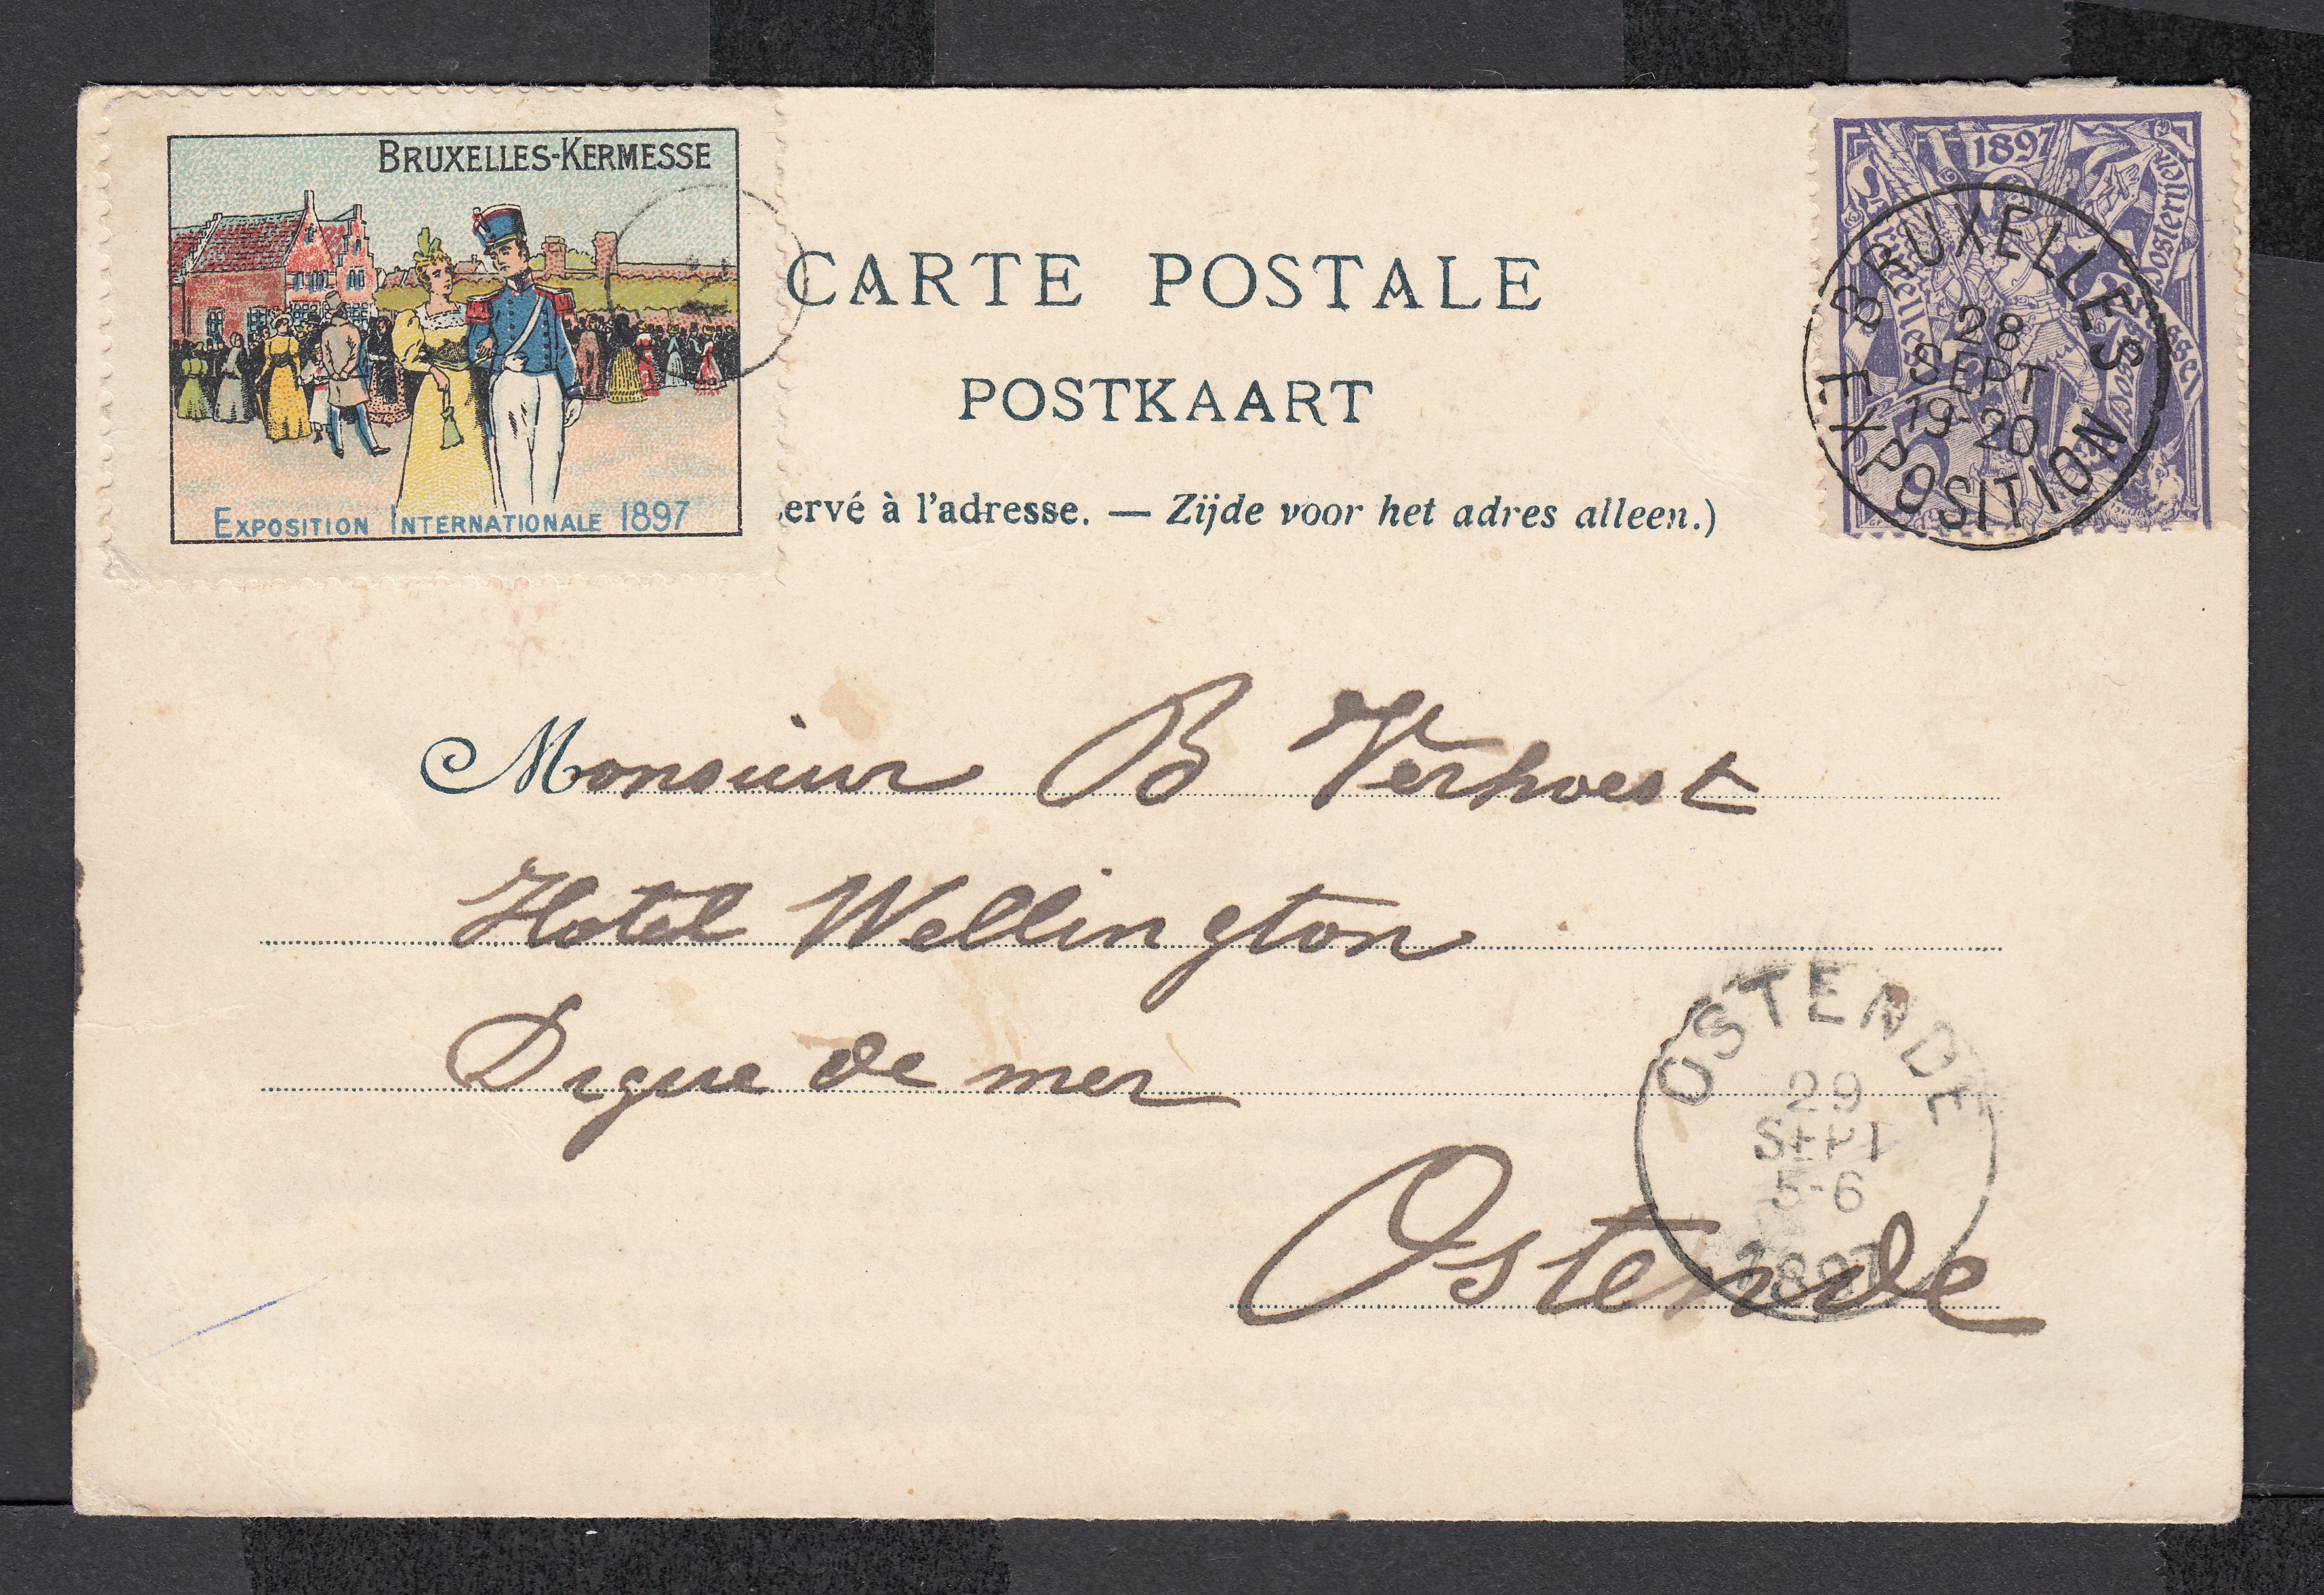 BRUXELLES-KERMESSE
EXPOSITION INTERNATIONALE 1897
CARTE POSTALE
POSTKAART
ervé à l'adresse. — Zijde voor het adres alleen.)
1897
BRUXELLES
28
SEPT
19-20
EXPOSITION
5
Monsieur B Verhoest
Hotel Wellington
Digue de mer
Ostende
OSTENDE
29
SEPT
5-6
1897